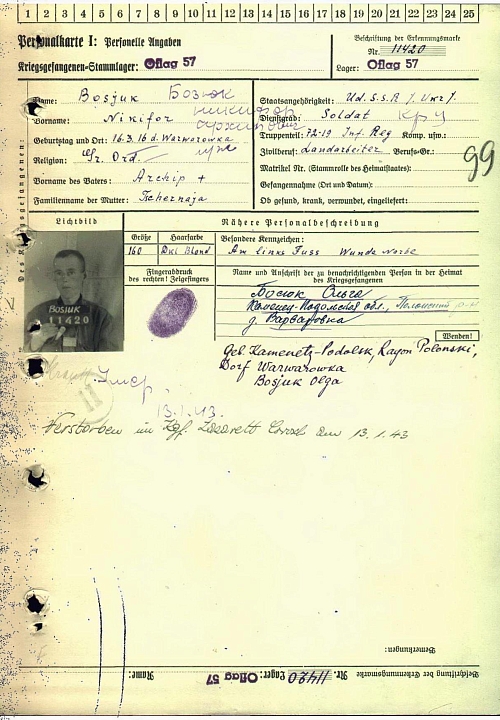 1 2 3 4 5 6 7 8 9 10 11 12 13 14 15 16 17 18 19 20 21 22 23 24 25
Personalkarte I: Personelle Angaben
Beschriftung der Erkennungsmarke
Nr. 11420
Kriegsgefangenen-Stammlager: Oflag 57
Lager: Oflag 57
Des Kriegsgefangenen:
Name: Bosjuk Бозюк
Vorname: Nikifor никифор
Geburtstag und Ort: 16.3.16 d. Warwarowka
Religion: Gr. Ord.
Vorname des Vaters: Archip +
Familienname der Mutter: Tschernaja
Staatsangehörigkeit: Ud.S.S.R /Ukr/.
Dienstgrad: Soldat
Truppenteil: 72-19 Inf. Reg Komp. usw.:
Zivilberuf: Landarbeiter Berufs-Gr.:
Matrikel Nr. (Stammrolle des Heimatstaates):
Gefangennahme (Ort und Datum):
Ob gesund, krank, verwundet, eingeliefert:
99
Lichtbild
Nähere Personalbeschreibung
Größe Haarfarbe Besondere Kennzeichen:
160 Dkl Blond Am links Fuss Wunde Norbe
Fingerabdruck
des rechten! Zeigefingers
Name und Anschrift der zu benachrichtigenden Person in der Heimat
des Kriegsgefangenen
BOSJUK
11420
Босюк Ольга
Каменец-Подольская обл., Полонский р-н
д. Варваровка
Wenden!
Geb. Kamenetz-Podolsk, Rayon Polonski,
Dorf Warwarowka
Bosjuk Olga
Умер.
13.1.43.
Verstorben im Kgf. Lazarett am 13.1.43
Bemerkungen:
Beschriftung der Erkennungsmarke Nr. 11420 Lager: Oflag 57 Name: